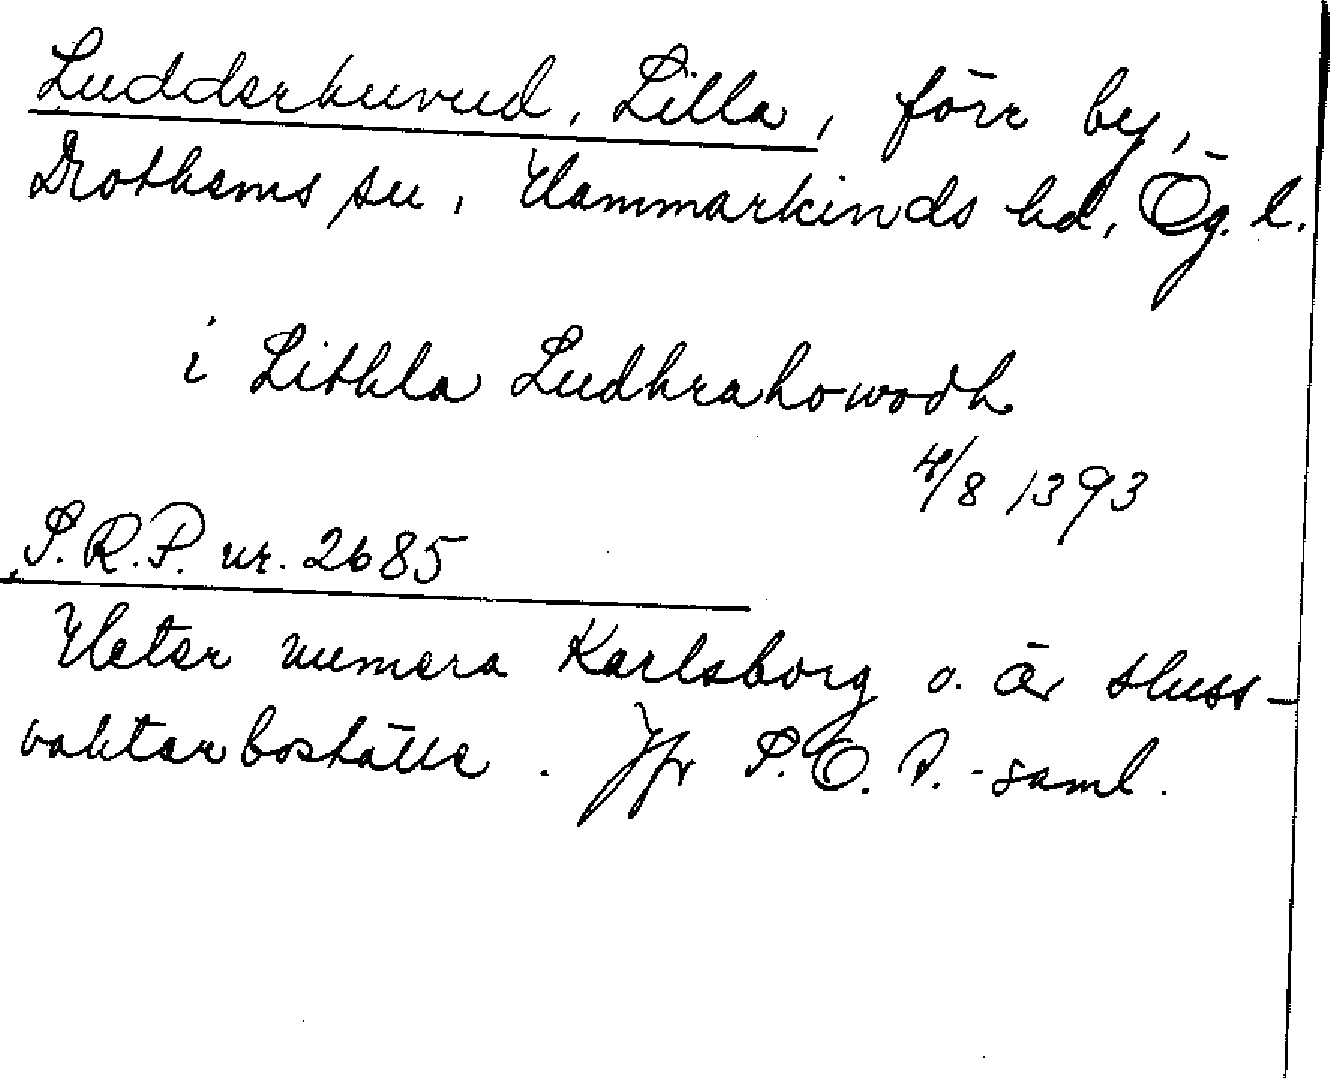 Ludderhuvud, Lilla, förr by,
Drothems sn, Hammarkinds hd, Ög. l.
i Lithla Ludhrahowodh
4/8 1393
S.R.P. nr. 2685
Heter numera Karlsborg o. är sluss-
vaktarboställe. Jfr S.O.A.-saml.